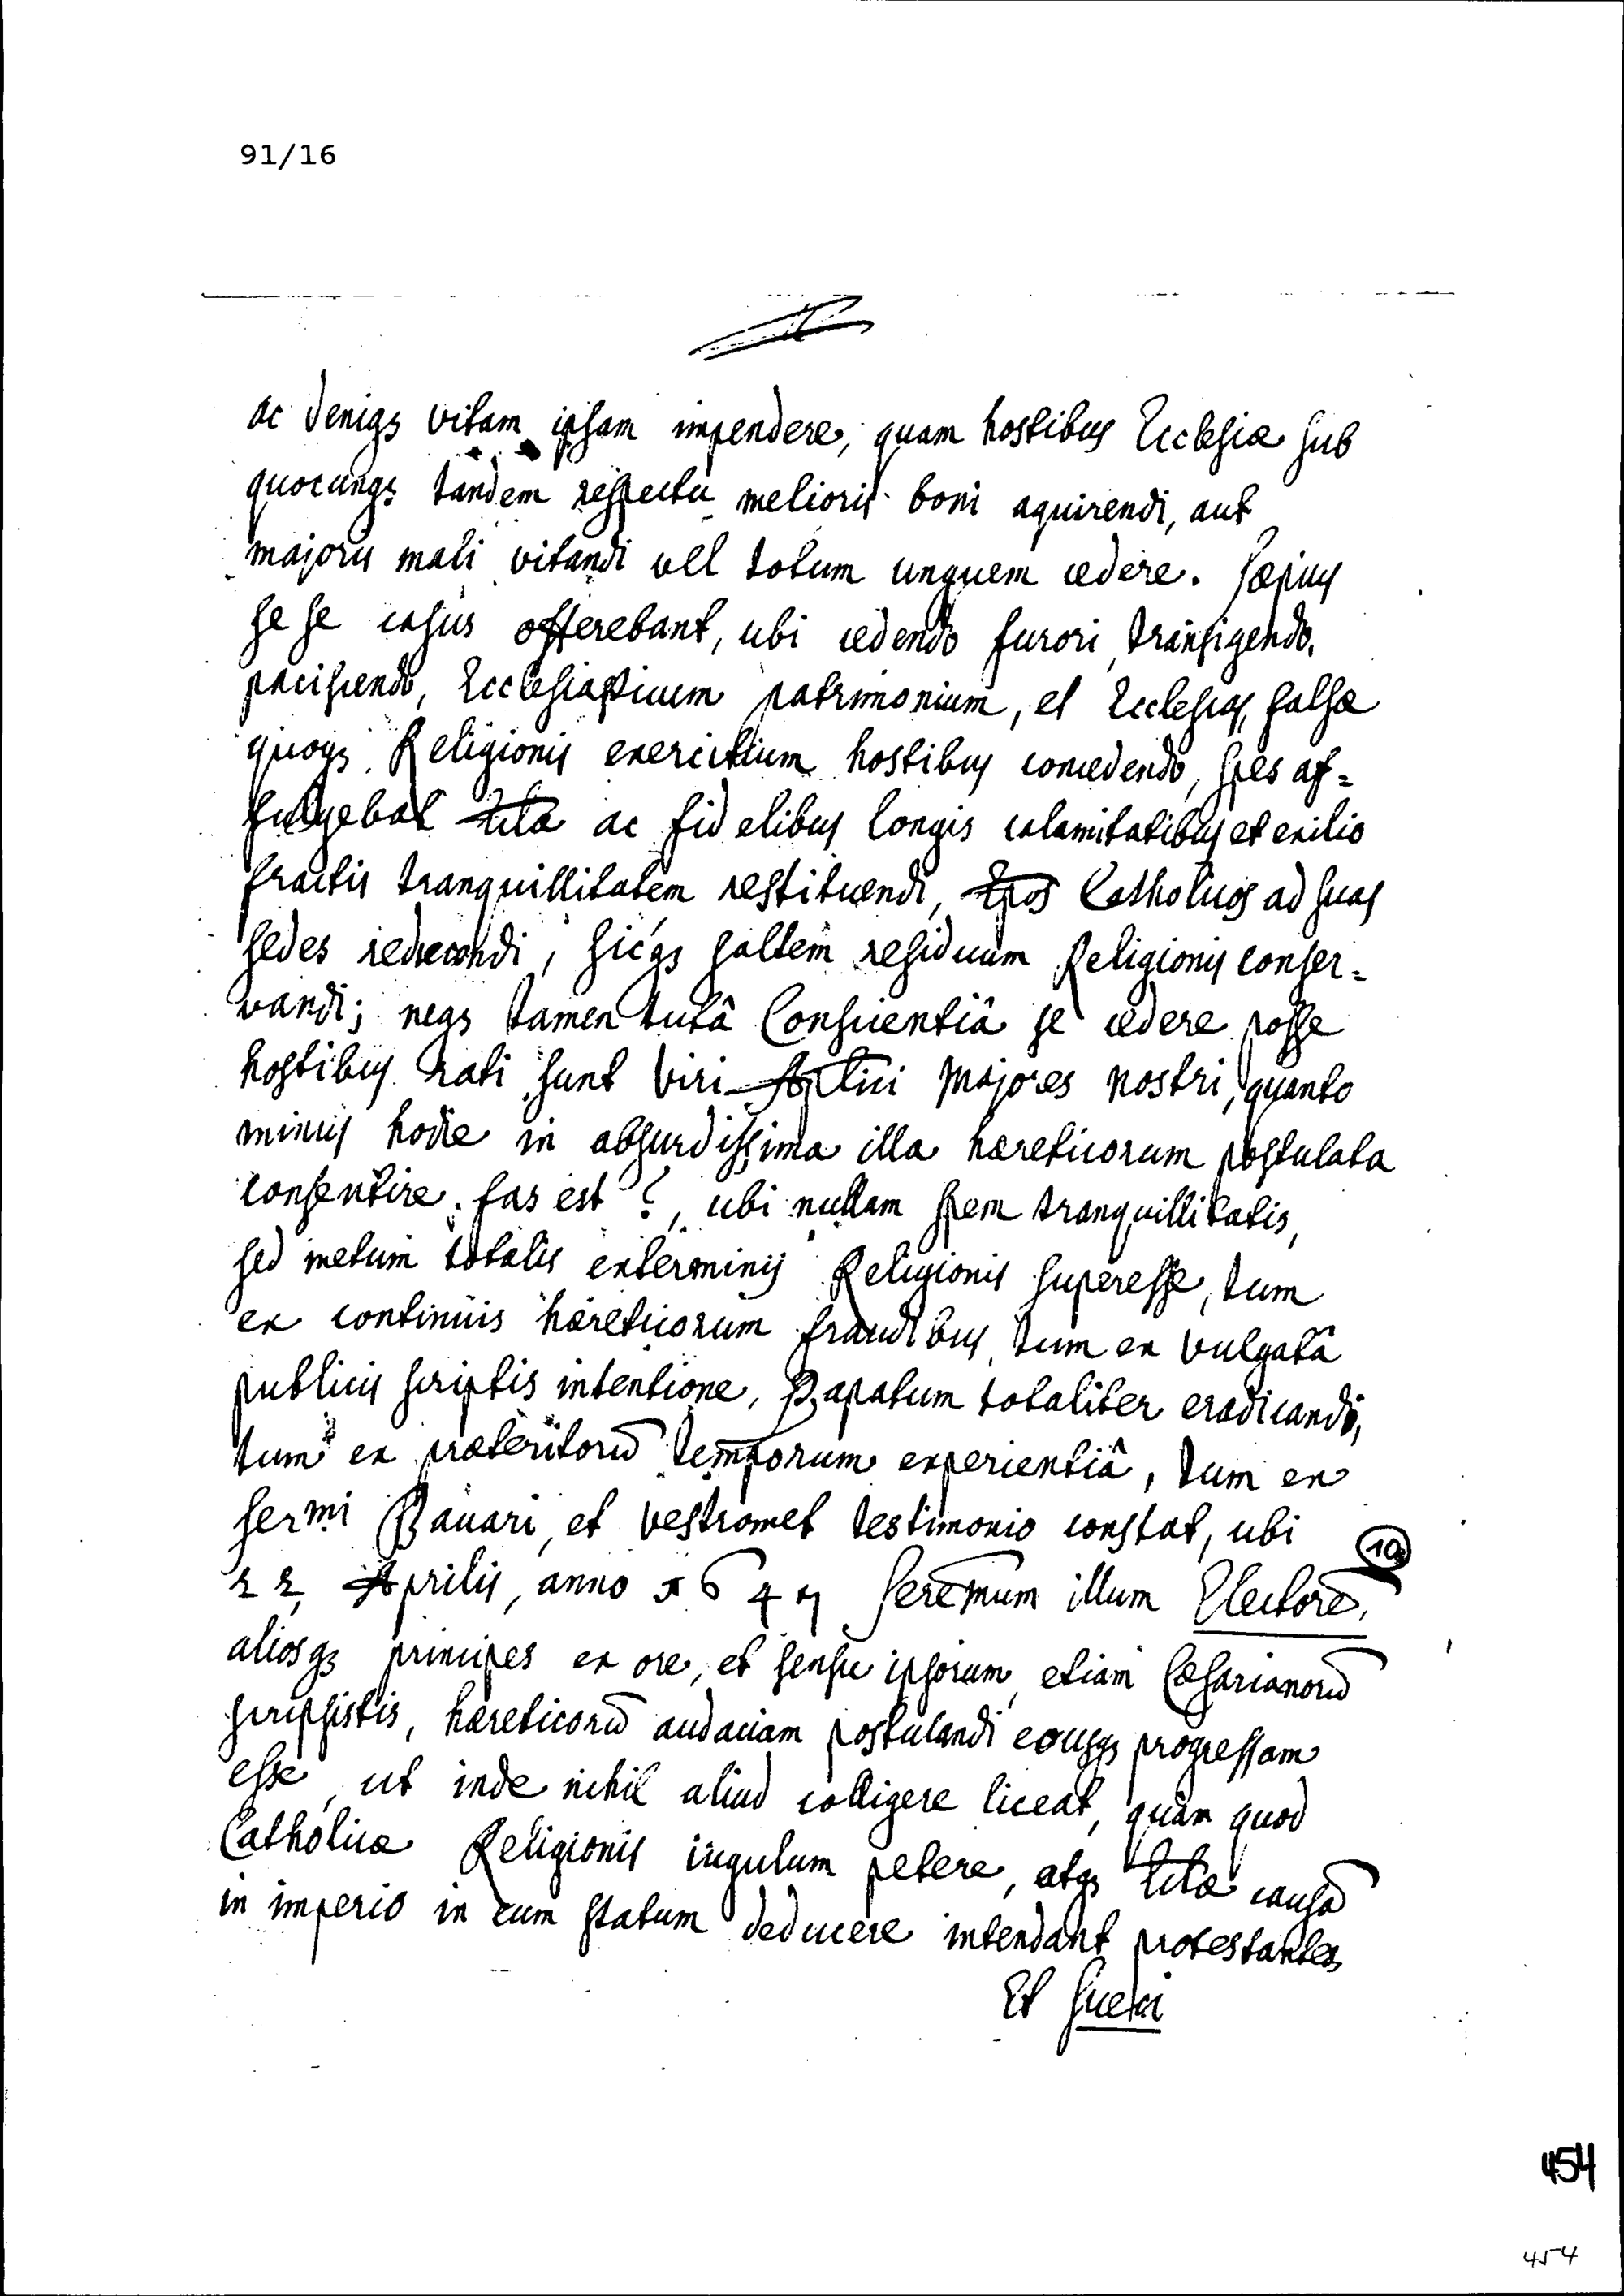 91/16
ac deniqꝫ vitam ipsam impendere, quam hostibus Ecclesiæ sub
quocunqꝫ tandem respectu melioris boni aquirendi, aut
majoris mali vitandi vel totum unguem cedere. Sæpius
se se casus offerebant, ubi cedendo furori, transigendo,
paciscendo, Ecclesiasticum patrimonium, et Ecclesias, falsæ
quoqꝫ Religionis exercitium hostibus concedendo, spes af=
fulgebat ac fidelibus longis calamitatibus et exilio
fractis tranquillitatem restituendi, Ep̄os Catholicos ad suas
sedes reducendi, sicqꝫ saltem residuum Religionis conser=
vandi; neqꝫ tamen tutâ Conscientiâ se cedere posse
hostibus rati sunt Viri Ap̄lici Majores nostri, quanto
minus hodie in absurdissima illa hæreticorum postulata
consentire fas est?, ubi nullam spem tranquillitatis,
sed metum totalis exterminij Religionis superesse, tum
ex continuis hæreticorum fraudibus, tum ex vulgatâ
publicis scriptis intentione, Papatum totaliter eradicandi,
tum ex præteritorū temporum experientiâ, tum ex
sermi Bavari, et vestromet testimonio constat, ubi
22, Aprilis, anno 1647 Serem̄um illum Electorē, 10.
aliosqꝫ principes ex ore, et sensu ipsorum etiam Cæsarianorū
scripsistis, hæreticorū audaciam postulandi eousqꝫ progressam
esse, ut inde nihil aliud colligere liceat, quàm quod
Catholicæ Religionis iugulum petere, atqꝫ causā
in imperio in eum statum deducere intendant protestantes
Et Sueci
454
454